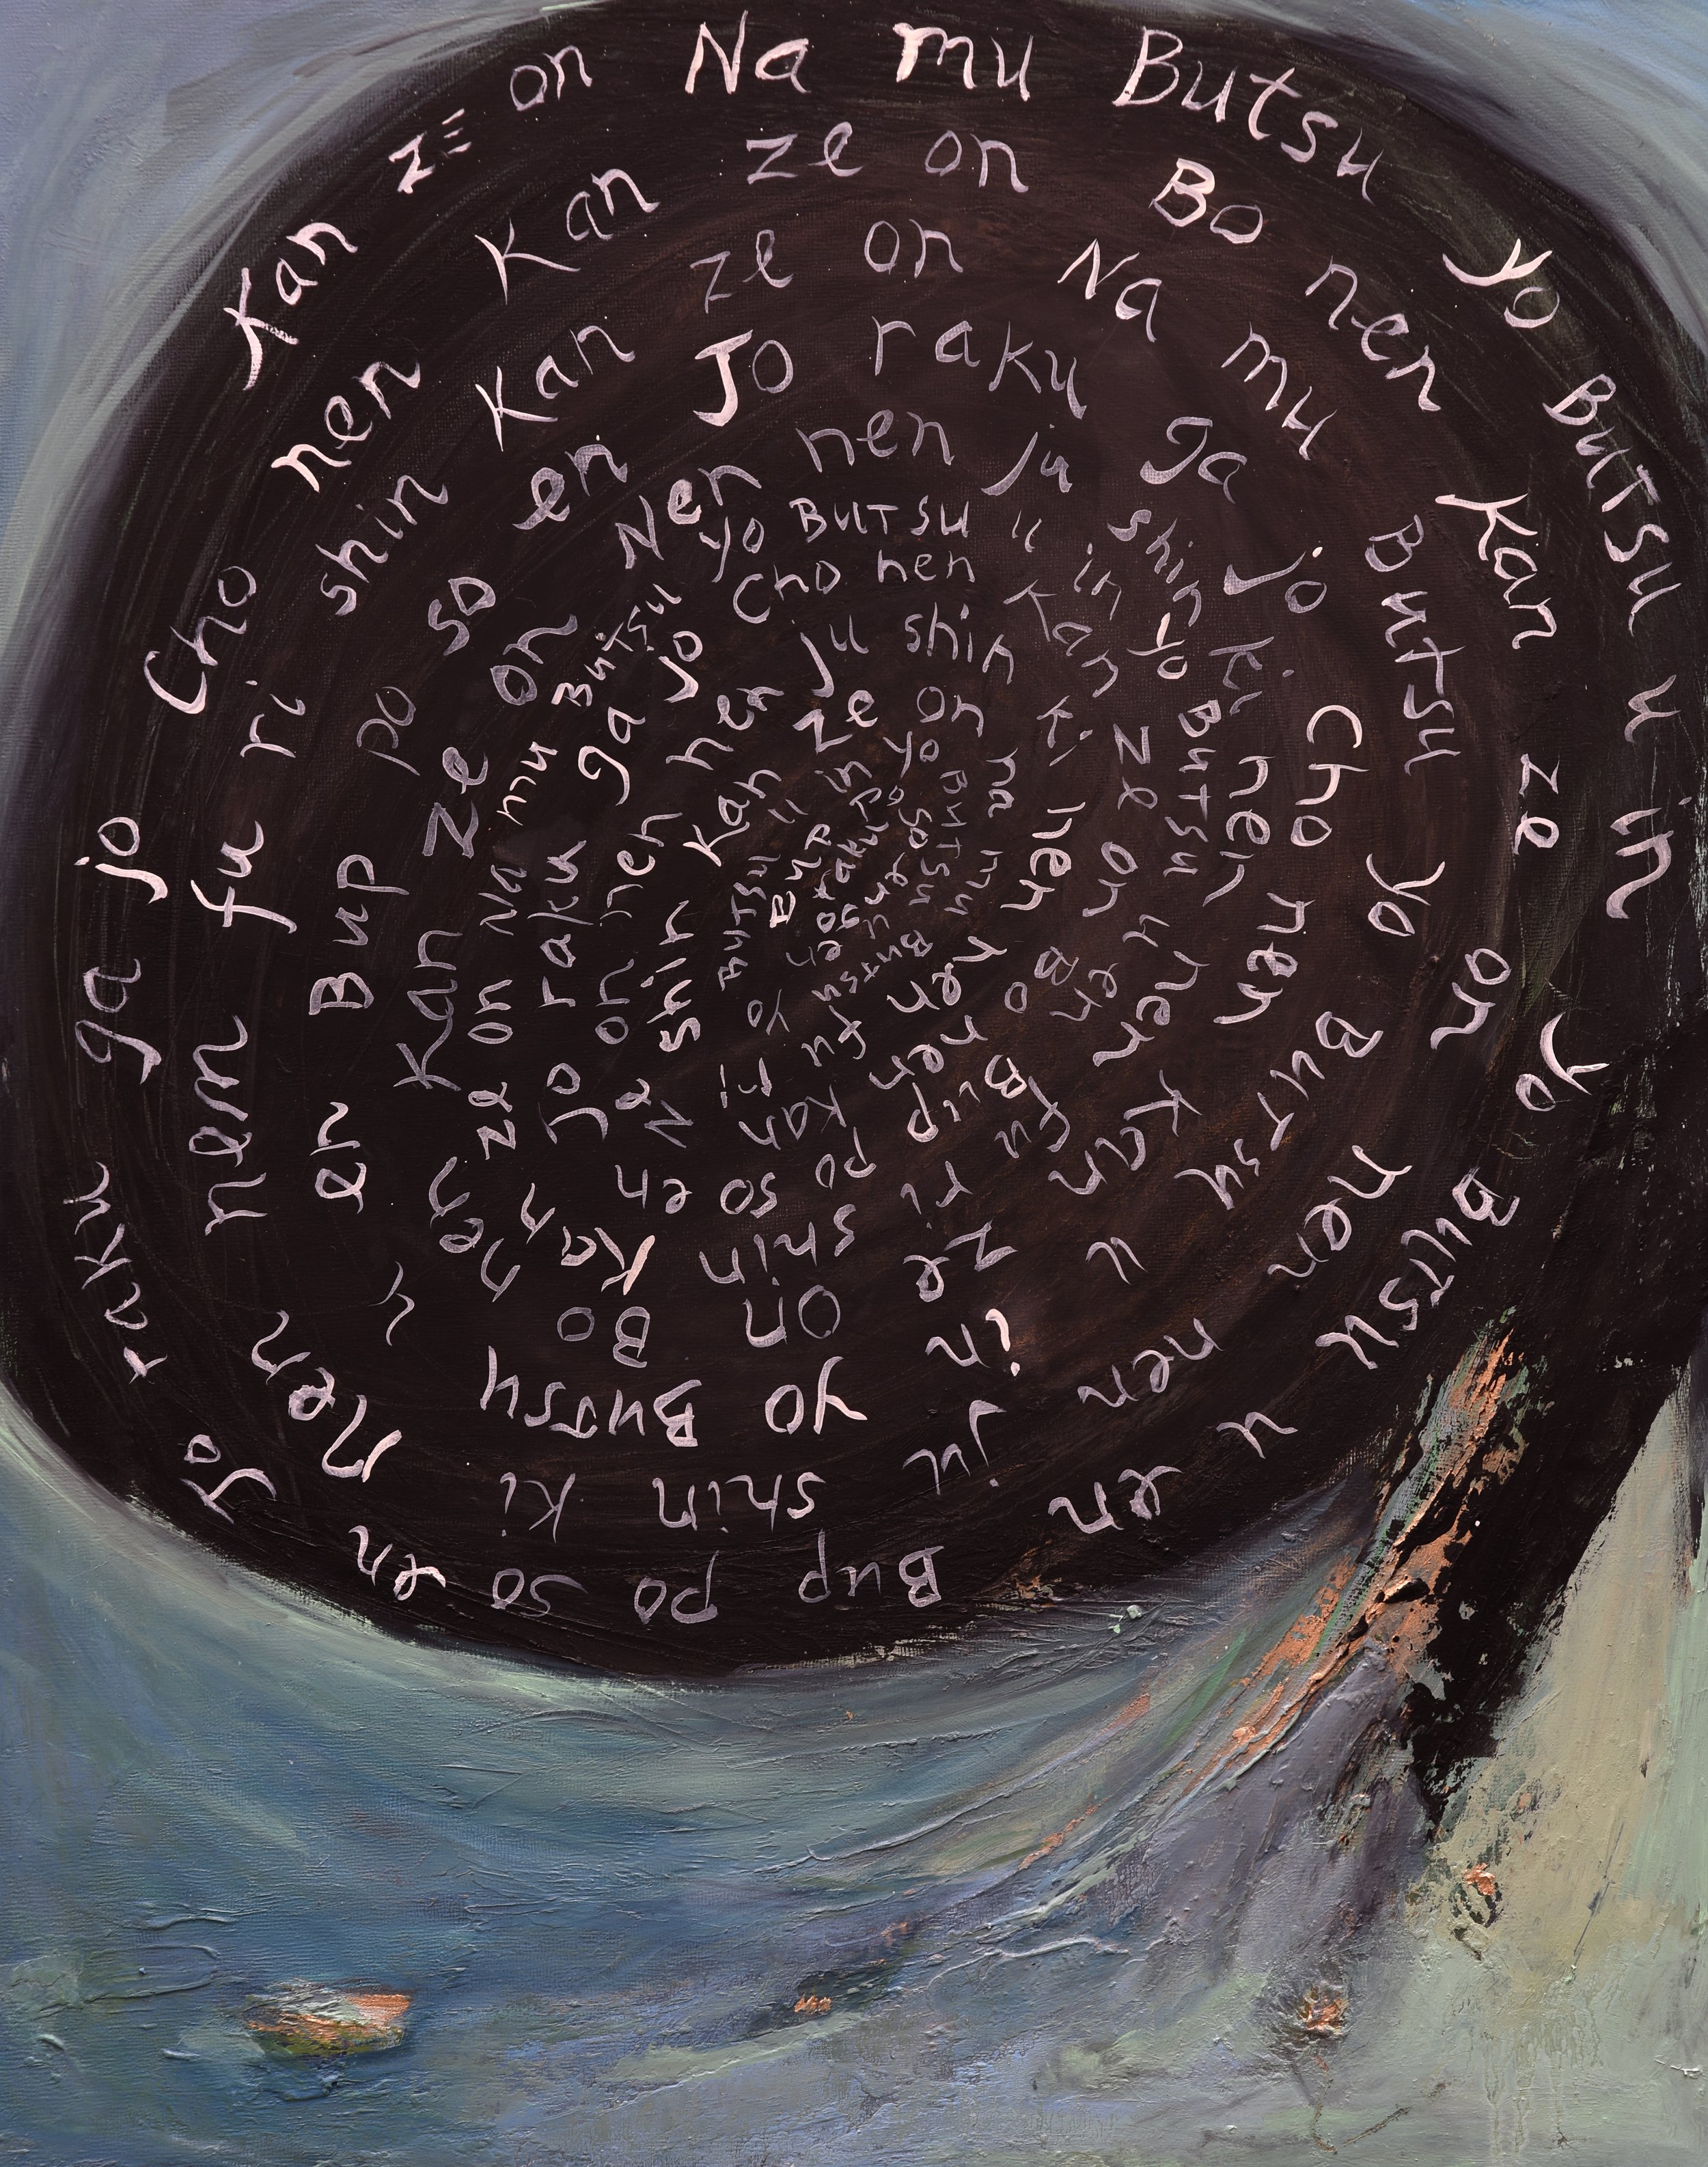 Kan ze on
Na mu Butsu
yo Butsu u in
yo Butsu u en
Bup po so en
Jo raku ga jo
Cho nen Kan ze on
Bo nen Kan ze on
nen nen ju shin ki
nen nem fu ri shin
Kan ze on
Na mu Butsu
yo Butsu u in
yo Butsu u en
Bup po so en
Jo raku ga jo
Cho nen Kan ze on
Bo nen Kan ze on
Nen nen ju shin ki
nen nen fu ri shin
Kan ze on
Na mu Butsu
yo Butsu u in
yo Butsu u en
Bup po so en
Jo raku ga jo
Cho nen Kan ze on
Bo nen Kan ze on
nen nen ju shin ki
nen nen fu ri shin
Kan ze on
na mu Butsu
yo Butsu u in
yo Butsu u en
Bup